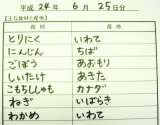 平成 24年 6月 25日分
【主な食材と産地】
食材 産地
とりにく いわて
にんじん ちば
ごぼう あおもり
しいたけ あきた
こもちししゃも カナダ
ねぎ いばらき
わかめ いわて